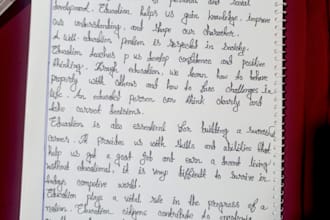 of personal and social
development. Education helps us gain knowledge, improve
our understanding, and shape our character.
A well educated person is respected in society.
Education teaches us develop confidence and positive
thinking. Through education, we learn how to behave
properly with others and how to face challenges in
life. An educated person can think clearly and
take correct decisions.
Education is also essential for building a successful
career. It provides us with skills and abilities that
help us get a good job and earn a decent living
without educational, it is very difficult to survive in
todays competive world.
Education plays a vital role in the progress of a
nation. Education citizens contribute to economic